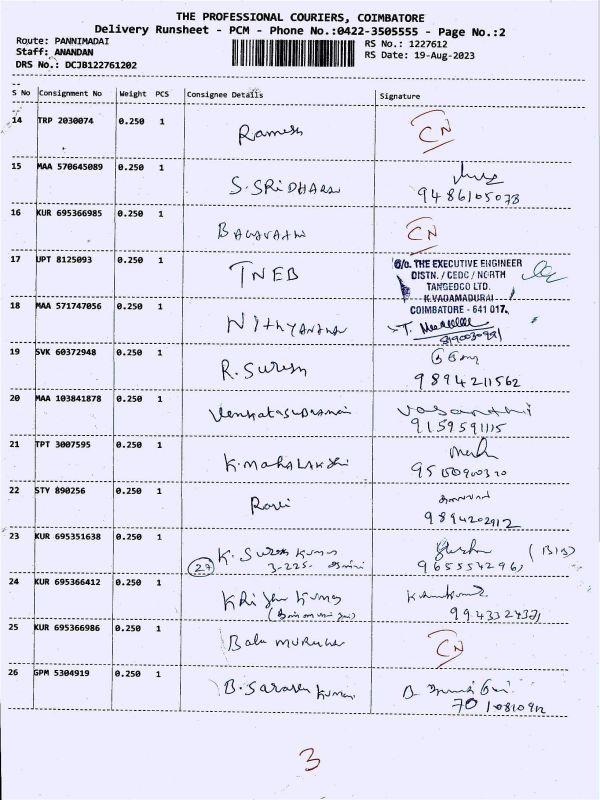 THE PROFESSIONAL COURIERS, COIMBATORE
Delivery Runsheet - PCM - Phone No.:0422-3505555 - Page No.:2
Route: PANNIMADAI
RS No.: 1227612
Staff: ANANDAN
RS Date: 19-Aug-2023
DRS No.: DCJB122761202
S No Consignment No Weight PCS Consignee Details Signature
14 TRP 2030074 0.250 1 Ramesh CN
15 MAA 570645089 0.250 1 S.SRIDHARAN
9486105073
16 KUR 695366985 0.250 1 CN
17 UPT 8125093 0.250 1 TNEB
O/o. THE EXECUTIVE ENGINEER
DISTN. / CEDC / NORTH
TANGEDCO LTD.
K.VADAMADURAI
COIMBATORE - 641 017.
18 MAA 571747056 0.250 1 Nithyanandan
19 SVK 60372948 0.250 1 R. Suresh
9894211562
20 MAA 103841878 0.250 1 Venkatasubramani Vasanthi
9159591115
21 TPT 3007595 0.250 1 K.MAHALAKSHMI
22 STY 890256 0.250 1 Ravi
9894202912
23 KUR 695351638 0.250 1 K. Suresh Kumar
27 3-225-
24 KUR 695366412 0.250 1 Krishna Kumar
25 KUR 695366986 0.250 1 Bala murugan CN
26 GPM 5304919 0.250 1 B. Saravana Kumar
3